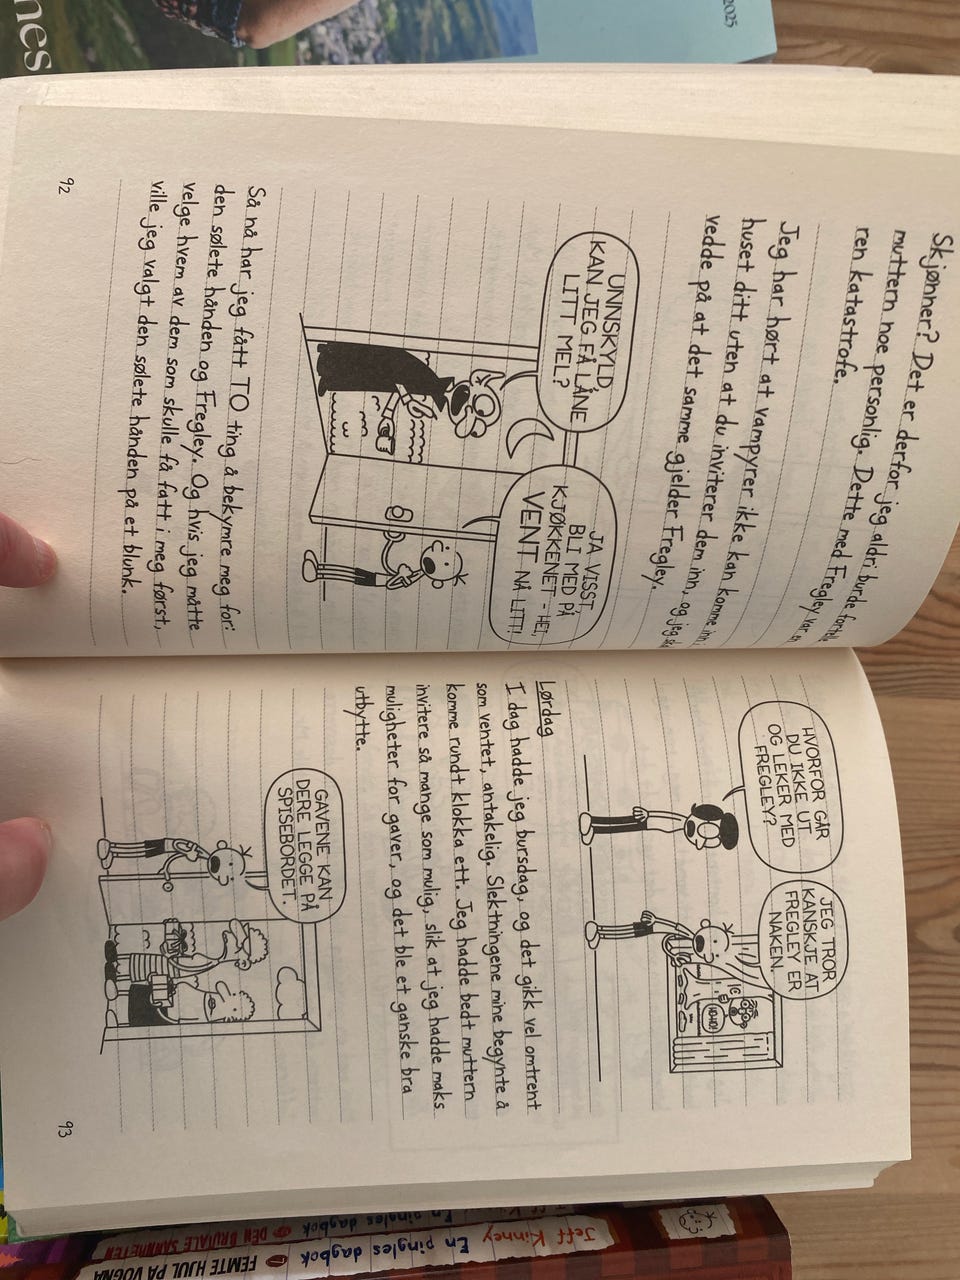 nes
2025
Skjønner? Det er derfor jeg aldri burde fortelle
muttern noe personlig. Dette med Fregley var en
ren katastrofe.
Jeg har hørt at vampyrer ikke kan komme inn i
huset ditt uten at du inviterer dem inn, og jeg
vedde på at det samme gjelder Fregley.
UNNSKYLD,
KAN JEG FÅ LÅNE
LITT MEL?
JA VISST,
BLI MED PÅ
KJØKKENET - HEI,
VENT NÅ LITT!
Så nå har jeg fått TO ting å bekymre meg for:
den sølete hånden og Fregley. Og hvis jeg måtte
velge hvem av dem som skulle få fatt i meg først,
ville jeg valgt den sølete hånden på et blunk.
92
HVORFOR GÅR
DU IKKE UT
OG LEKER MED
FREGLEY?
JEG TROR
KANSKJE AT
FREGLEY ER
NAKEN.
HO-HO!
Lørdag
I dag hadde jeg bursdag, og det gikk vel omtrent
som ventet, antakelig. Slektningene mine begynte å
komme rundt klokka ett. Jeg hadde bedt muttern
invitere så mange som mulig, slik at jeg hadde maks
muligheter for gaver, og det ble et ganske bra
utbytte.
GAVENE KAN
DERE LEGGE PÅ
SPISEBORDET.
93
Jeff Kinney En pingles dagbok FEMTE HJUL PÅ VOGNA
En pingles dagbok DEN BRUTALE SANNHETEN